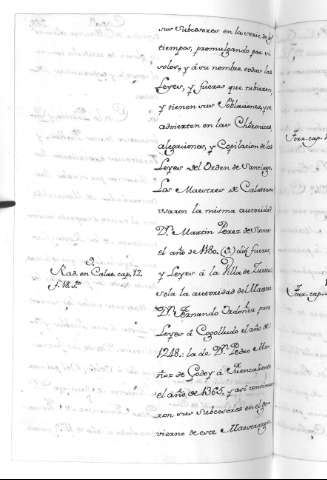 sus Subcesores en la serie de los
tiempos, promulgando por si
solos, y á su nombre todas las
Leyes, y fueros que rubieren,
y tienen sus Poblaciones, que
advierten en las Chronicas,
alegaciones, y Copilacion de las
Leyes del Orden de Santiago.
Los Maestres de Calatrava
usaron la misma autoridad
Dn. Martin Perez de Siones
el año de 1180. dió fueros,
y Leyes á la Villa de Zurita
sola la autoridad del Maestre
Dn. Fernando Ordoñez puso
Leyes á Cogolludo el año de
1248: la de Dn. Pedro Mu-
ñiz de Godoy á Fuencaliente
el año de 1365, y asi continuaron
sus Subcesores en el go-
vierno de este Maestrazgo
Rad. en Calat. cap. 12.
f. 18. 2ta.
Frax. cap.
Frax. cap.